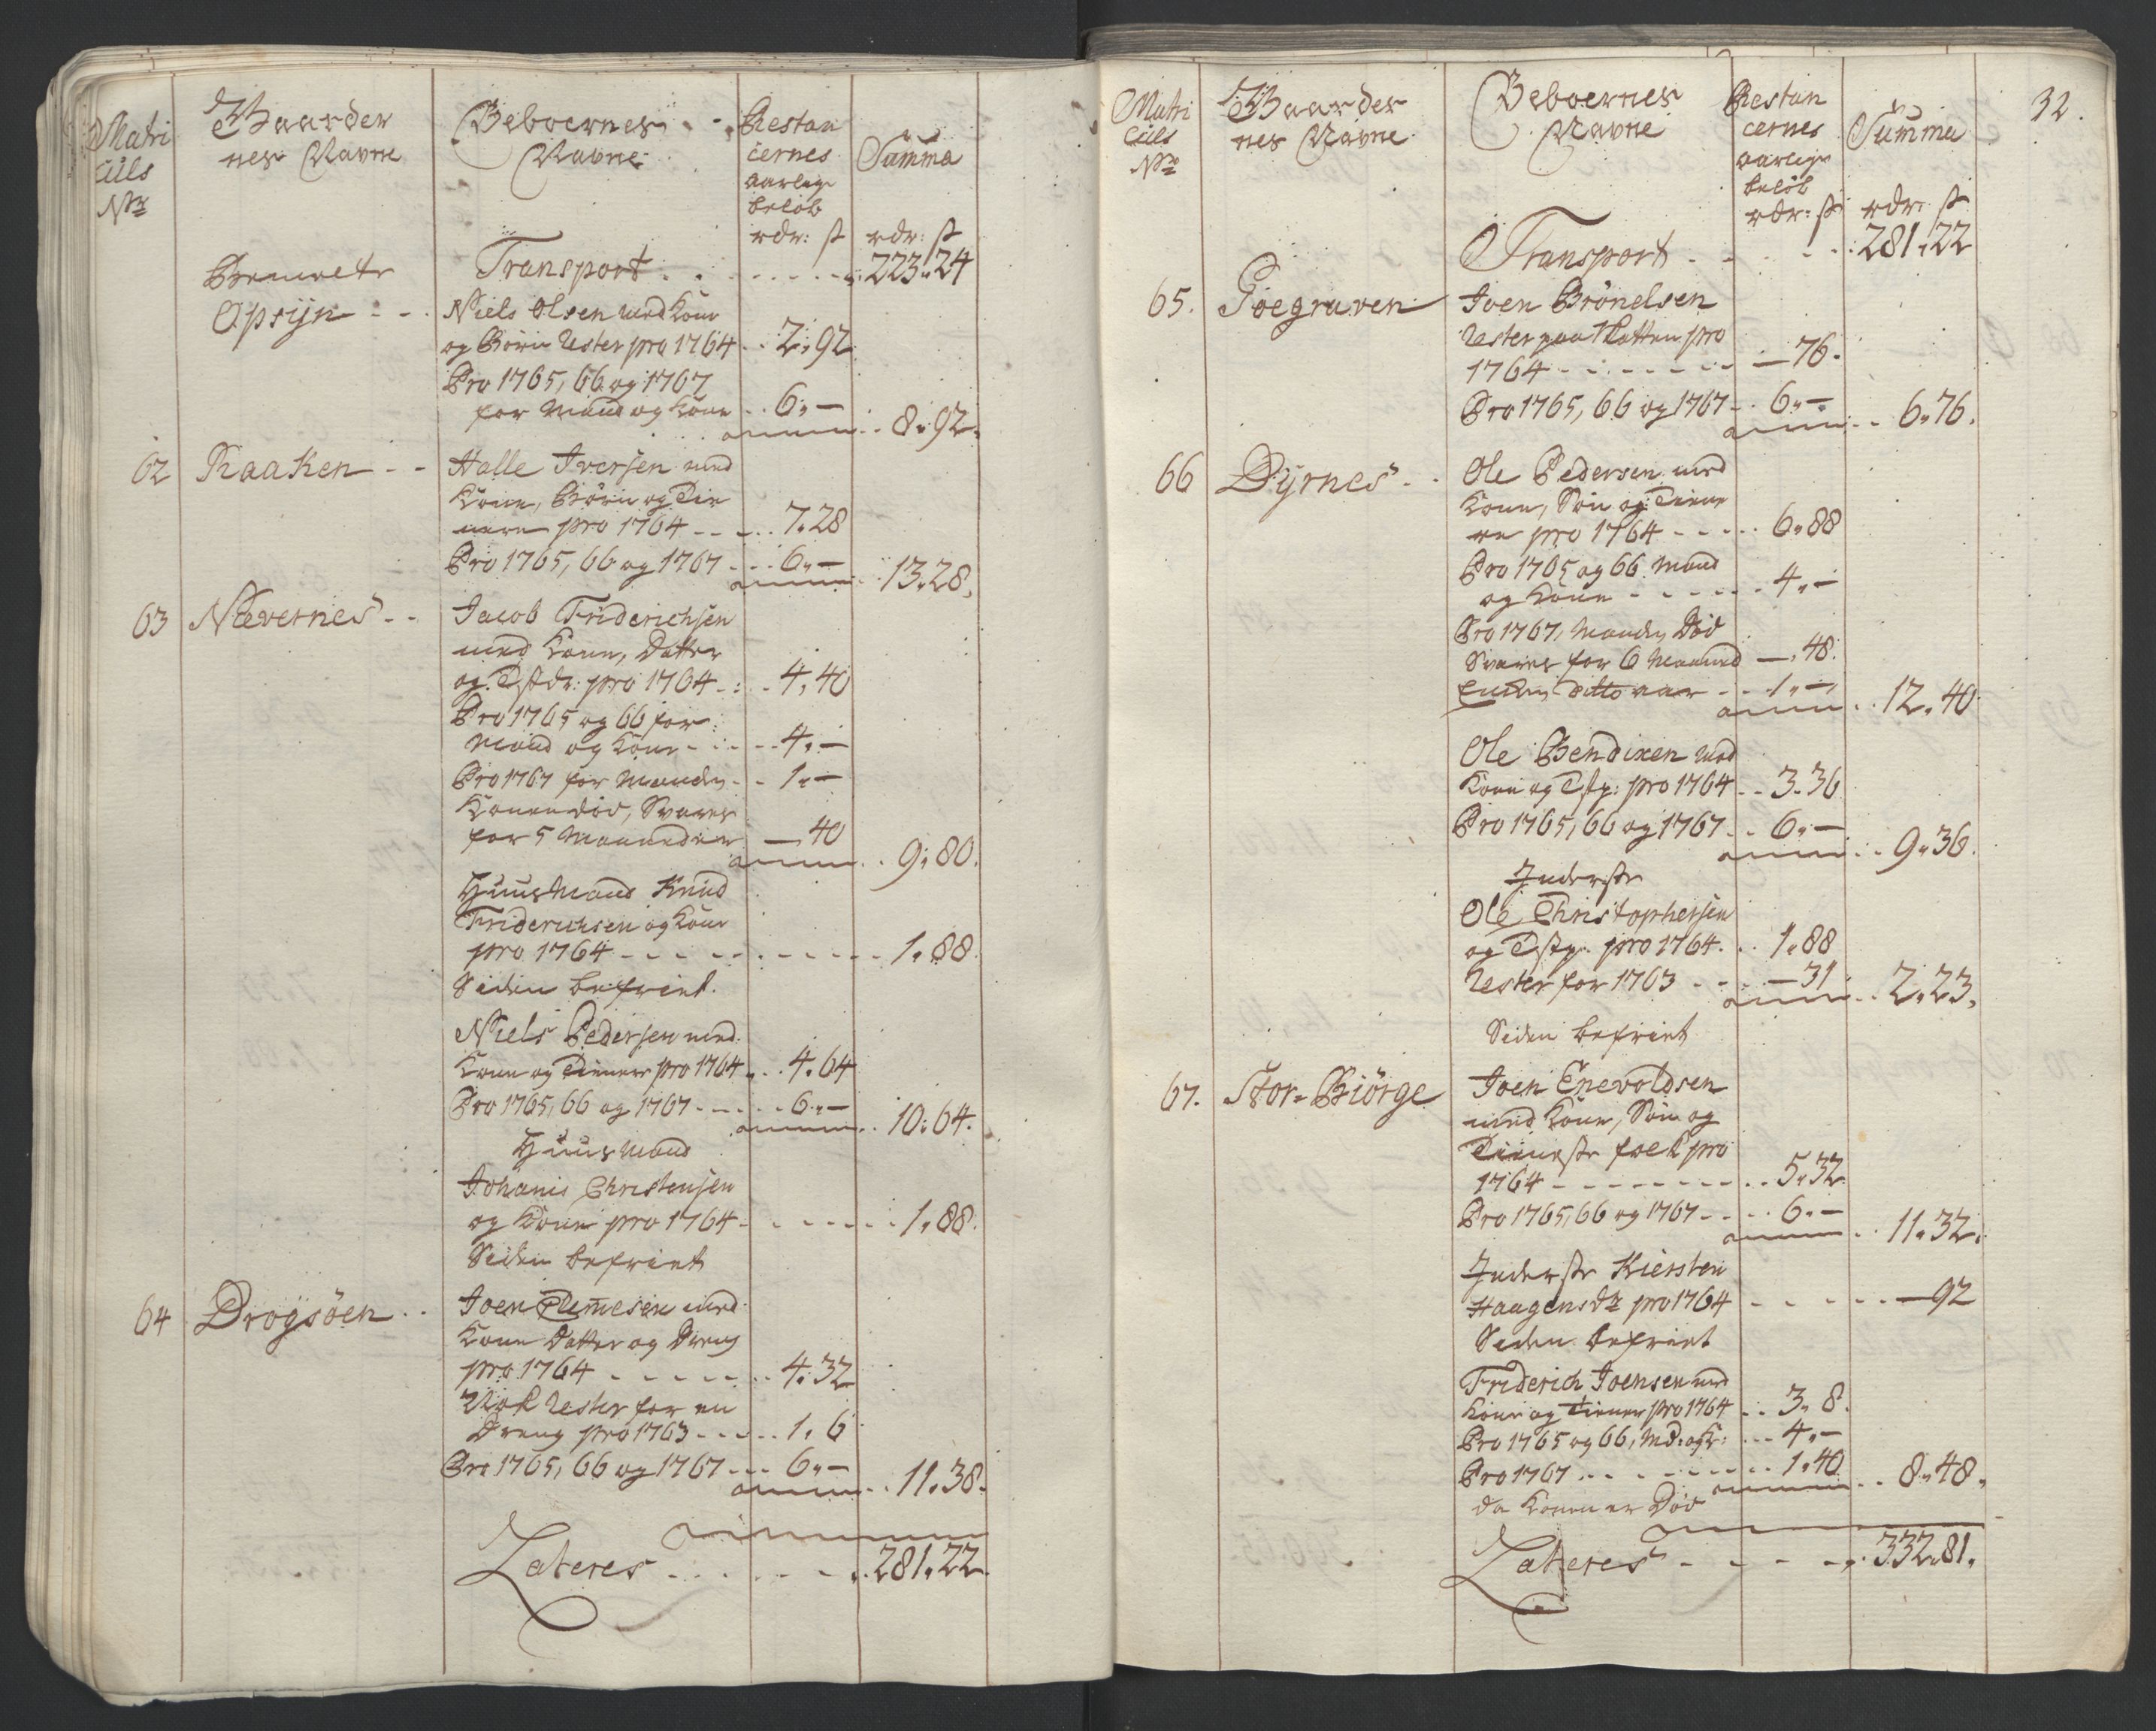 Matri
culs
Nr
Gaarder
nes Navne
Beboernes
Navne
Restan
cernes
aarlige
beløb
rdr: ß
Summa
rdr: ß
Transport . . . 223 " 24
Opsijn - -
Niels Olsen med Kone
og Børn Rester pro 1764 . . 2 " 92
Pro 1765, 66 og 1767
for Mand og Kone . . 6 " —
8 " 92.
62 Raaken - -
Halle Iversen med
Kone, Børn og Tie
nere pro 1764 - - - . . 7 " 28
Pro 1765, 66 og 1767 - . . 6 " —
13 " 28.
63 Nævernes - -
Jacob Friderichsen
med Kone, Datter
og Tstdr: pro 1764 - . . 4 " 40
Pro 1765 og 66 for
Mand og Kone - - . . 4 " —
Pro 1767 for Manden - - 1 " —
Konen død, Svares
for 5 Maaneder — 40
9 " 80.
Huusmand Knud
Friderichsen og Kone
pro 1764 - - - - - - - 1 " 88.
Siden befriet.
Niels Pedersen med
Kone og Tiener pro 1764 . . 4 " 64
Pro 1765, 66 og 1767 - - - . . 6 " —
10 " 64.
Huusmand
Johanis Christensen
og Kone pro 1764 - - - - - - 1 " 88.
Siden befriet
64 Drogsöen . .
Joen Tummesen med
Kone Datter og Dreng
pro 1764 - - - - - . . 4 " 32
Nok Rester for en
Dreng pro 1763 - - - . . 1 " 6
Pro 1765, 66 og 1767 - - - 6 " —
11 " 38.
Lateres - - - - - 281 " 22.
32.
Matri
culs
Nr
Gaarder
nes Navne
Beboernes
Navne
Restan
cernes
aarlige
beløb
rdr: ß
Summa
rdr: ß
Transport - - - - 281 " 22
65. Goegraven
Joen Brönelsen
Rester paa Skatten pro
1764 - - - - - - - — 76.
Pro 1765, 66 og 1767 - . 6 " —
6 " 76.
66 Dyrnes - -
Ole Pedersen med
Kone, Søn og Tiene
re pro 1764 - - - - . . 6 " 88
Pro 1765 og 66 Mand
og Kone - - - - - . 4 " —
Pro 1767, Manden Død
Svares for 6 Maaned — " 48.
Enken ditto aar - - . 1 " —
12 " 40.
Ole Bendixen med
Kone og Tstp: pro 1764 . . 3 " 36
Pro 1765, 66 og 1767 - . 6 " —
9 " 36.
Inderste
Ole Christophersen
og Tstp. pro 1764. . . 1 " 88
Rester for 1763 - - - . — 31
2 " 23.
Siden befriet
67. Stor-Biörge
Joen Enevoldsen
med Kone, Søn og
Tieneste folk pro
1764 - - - - - - - - . . 5 " 32
Pro 1765, 66 og 1767 - - . . 6 " —
11 " 32.
Inderste Kiersten
Haagensdr pro 1764 - - - - - — 92
Siden befriet
Friderich Joensen med
Kone og Tiener pro 1764 . . 3 " 8.
Pro 1765 og 66, Md: og K: . . . 4 " —
Pro 1767 - - - - - - - - 1 " 40
8 " 48.
da Konen er Død
Lateres - - - - - 332 " 81.